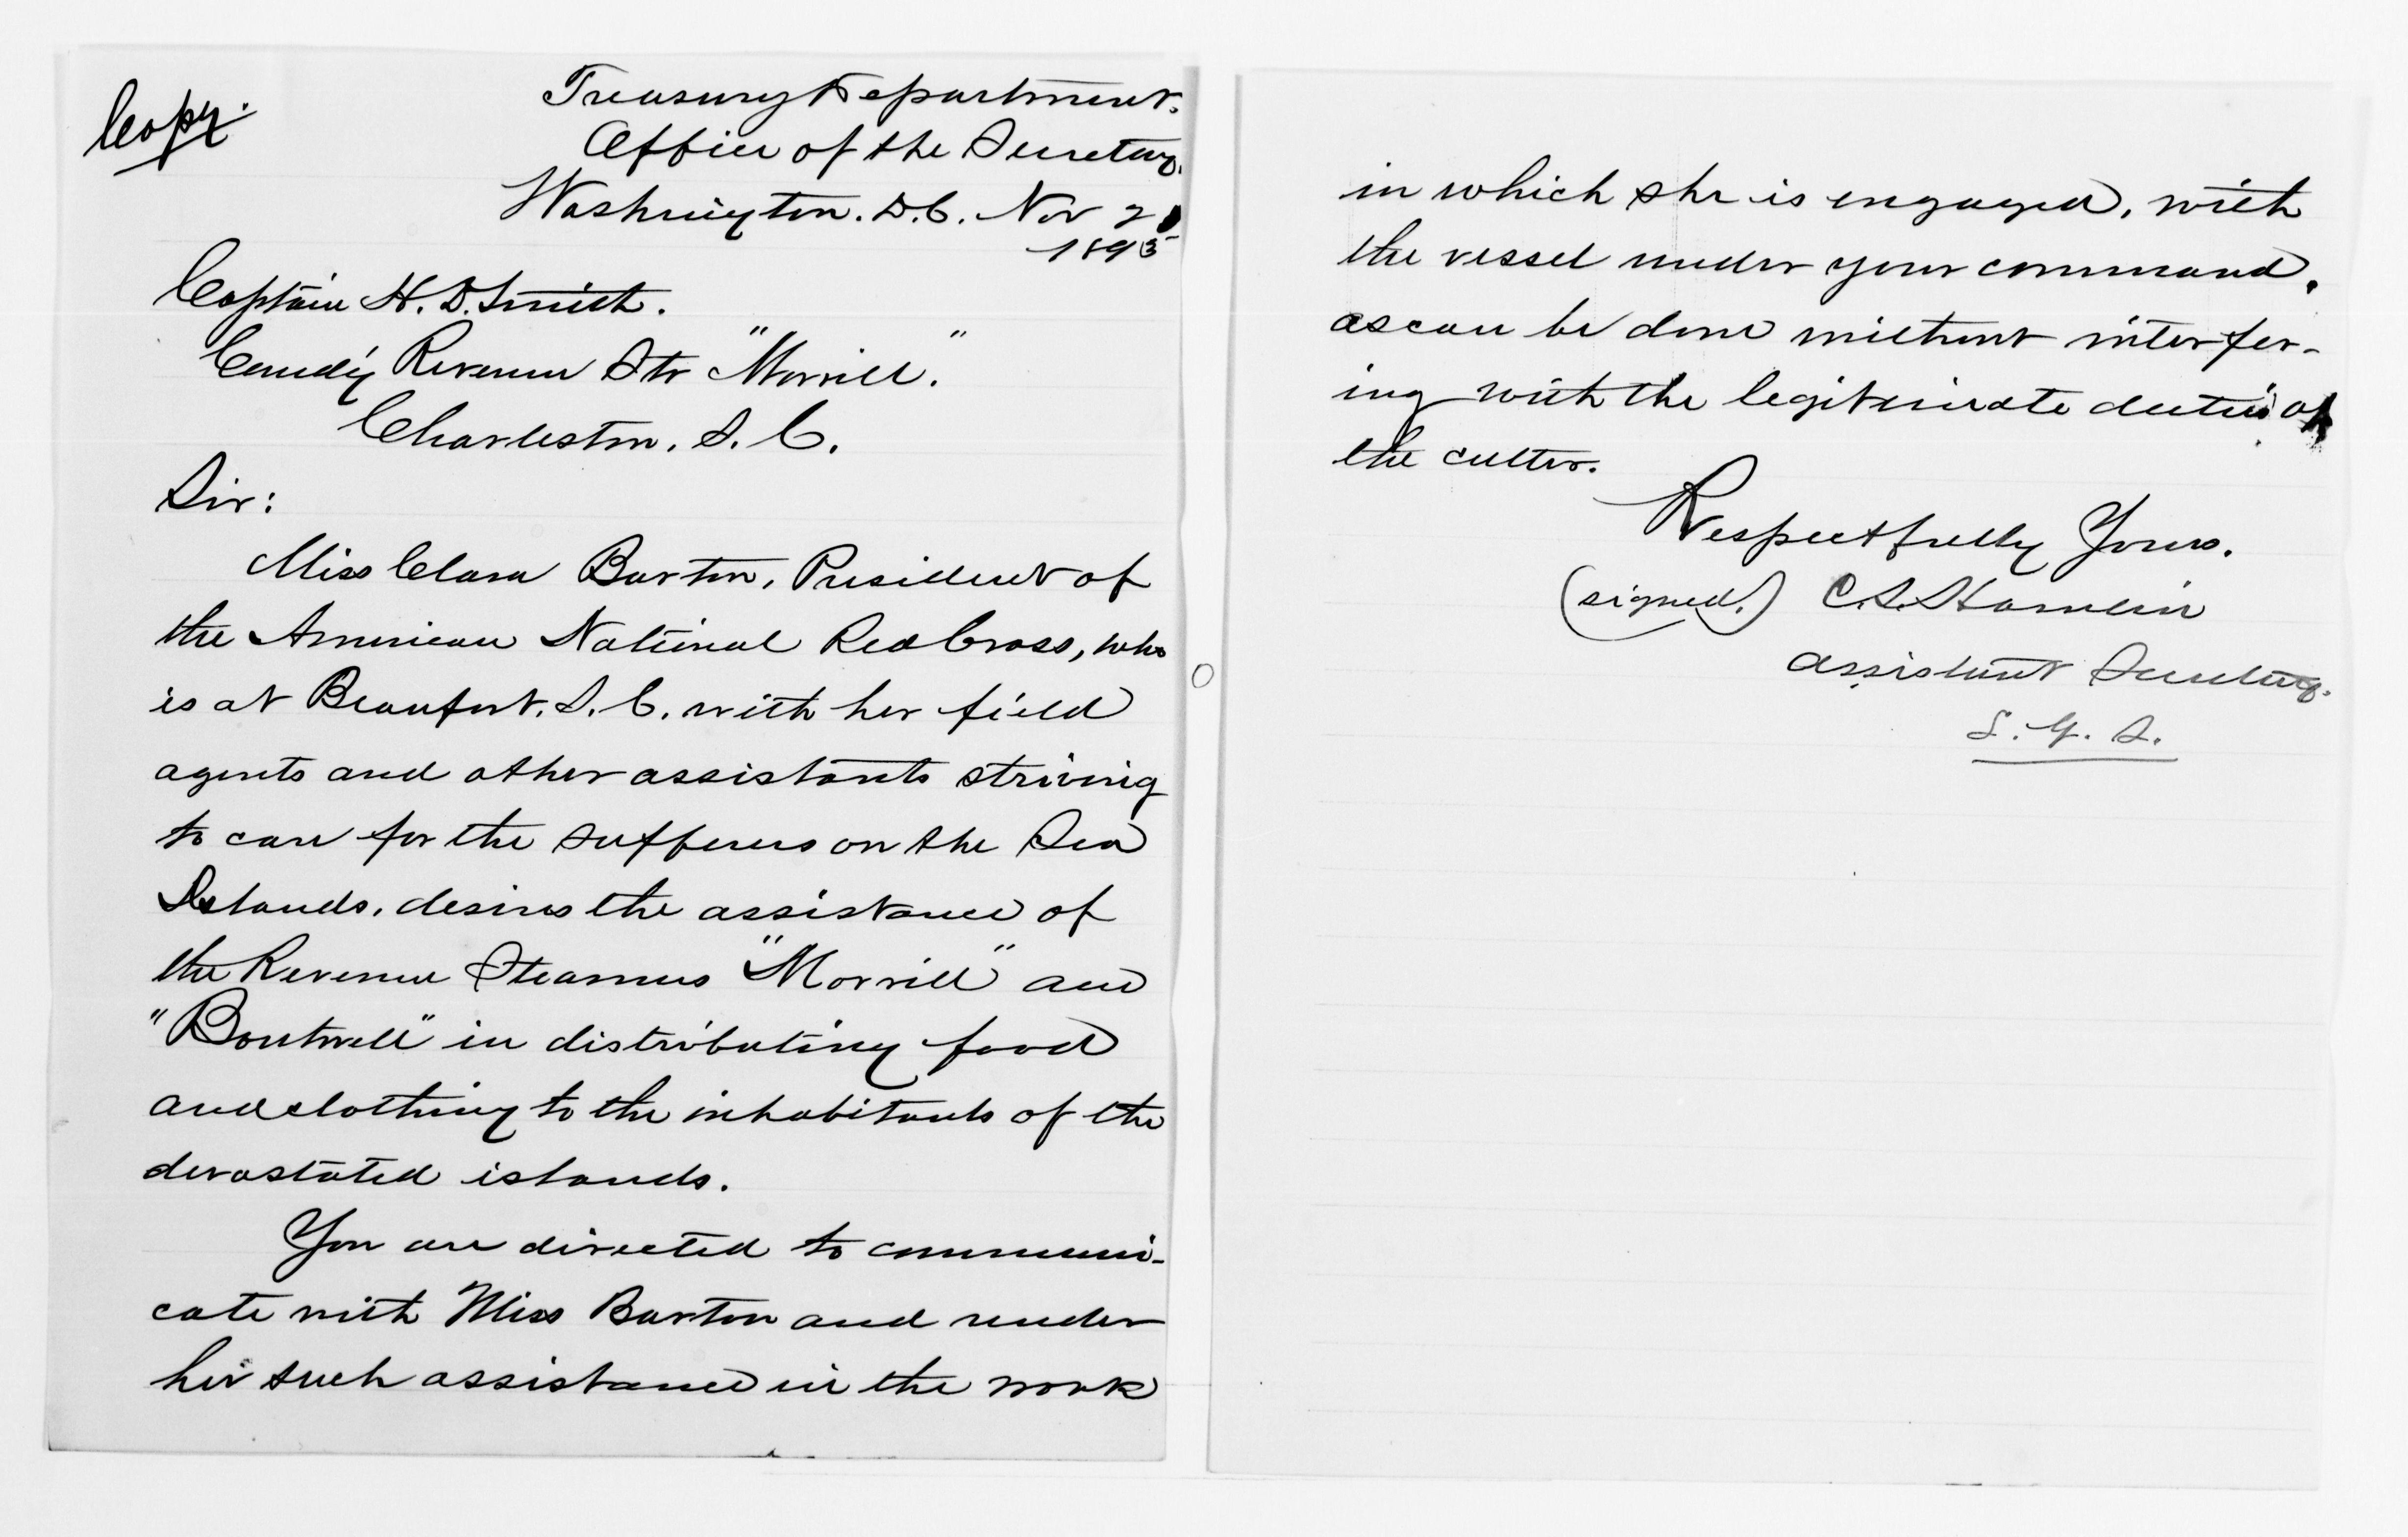 Copy.
Treasury Department.
Office of the Secretary.
Washington. D.C. Nov 2
1893
Captain H. D. Smith.
Comd'g Revenue Str "Morrill."
Charleston, S. C.
Sir:
Miss Clara Barton, President of
the American National Red Cross, who
is at Beaufort, S. C. with her field
agents and other assistants striving
to care for the sufferers on the Sea
Islands, desires the assistance of
the Revenue Steamers "Morrill" and
"Boutwell" in distributing food
and clothing to the inhabitants of the
devastated islands.
You are directed to communi-
cate with Miss Barton and render
her such assistance in the work
in which she is engaged, with
the vessel under your command,
as can be done without interfer-
ing with the legitimate duties of
the cutter.
Respectfully Yours.
(signed.) C. S. Hamlin
Assistant Secretary.
S. G. S.